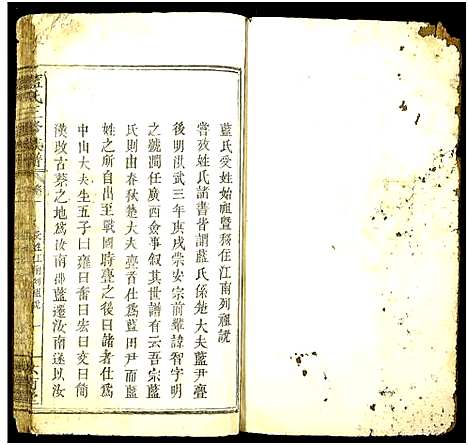 藍氏受姓始祖暨務住江南列祖說
嘗攷姓氏諸書皆謂藍氏係楚大夫藍尹亹
後明洪武三年庚戌崇安宗前輩諱智字明
之號澗任廣西僉事叙其世譜有云吾宗藍
氏則由春秋楚大夫亹者仕為藍田尹而藍
姓之所自出至戰國時亹之後曰諸者仕為
中山大夫生五子曰雍曰奮曰宏曰交曰簡
漢政古蔡之地為汝南郡藍遷汝南遂以汝
藍氏三修族譜
卷
受姓江南列祖說
一